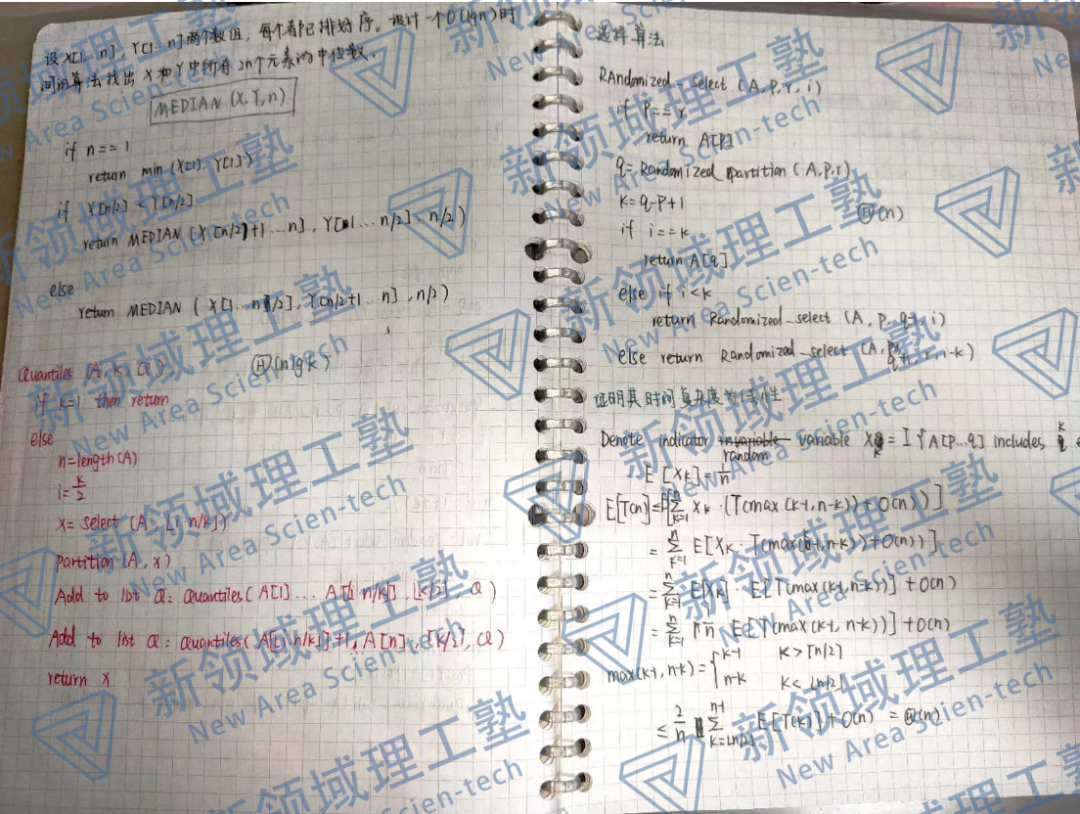 设X[1...n], Y[1...n]两个数组, 每个都已排好序。设计一个O(lgn)时
间的算法找出X和Y中所有2n个元素的中位数.
MEDIAN (X,Y,n)
if n==1
return min (X[1], Y[1])
if X[n/2] < Y[n/2]
return MEDIAN (X[n/2+1...n], Y[1...n/2], n/2)
else
return MEDIAN (X[1...n/2], Y[n/2+1...n], n/2)
Quantiles (A, K, Q) Θ(nlgk)
if k=1 then return
else
n=length(A)
i=k/2
x= select (A, ⌊i·n/k⌋)
partition (A, x)
Add to list Q: Quantiles(A[1]...A[⌊i·n/k⌋], ⌊k/2⌋, Q)
Add to list Q: Quantiles(A[⌊i·n/k⌋]+1, A[n], ⌈k/2⌉, Q)
return x
选择算法
RAndomized-Select (A,P,r,i)
if P==r
return A[P]
q=Randomized partition (A,P,r)
K=q-P+1 Θ(n)
if i==k
return A[q]
else if i<k
return Randomized-select (A, P, q-1, i)
else return Randomized-select (A, q+1, r, i-k)
证明其时间复杂度为线性
Denote indicator random variable Xk = I{A[P...q] includes k
E[Xk]=1/n
E[T(n)]=E[∑k=1n Xk·(T(max(k-1,n-k))+O(n))]
=∑k=1n E[Xk·T(max(k-1,n-k))+O(n))]
=∑k=1n E[Xk]·E[T(max(k-1,n-k))]+O(n)
=∑k=1n 1/n·E[T(max(k-1,n-k))]+O(n)
max(k-1,n-k)={k-1 K>⌈n/2⌉
n-k K<⌊n/2⌋
≤2/n ∑k=⌊n/2⌋n-1 E[T(k)]+O(n) =Θ(n)
新领域理工塾
New Area Scien-tech